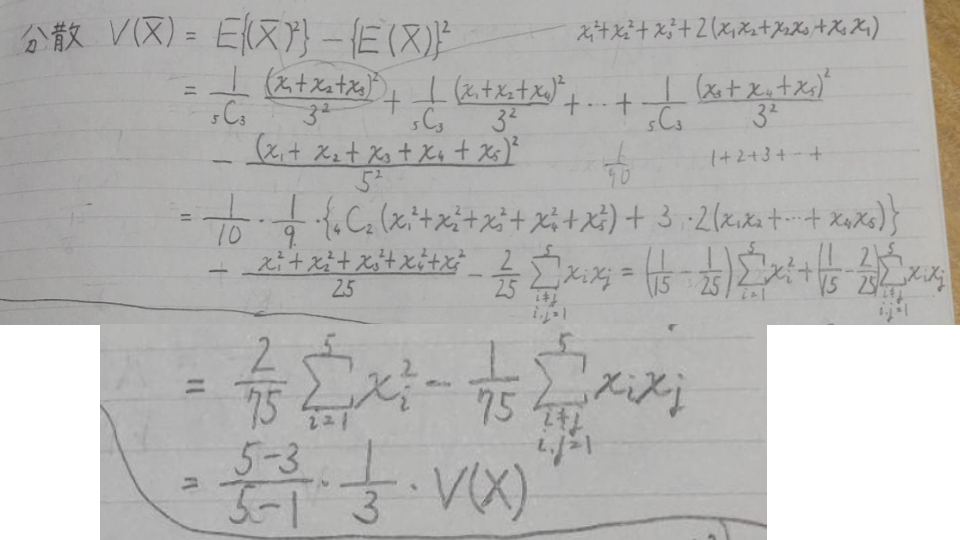 分散 V(X̄) = E{(X̄)²} - {E(X̄)}² x₁²+x₂²+x₃²+2(x₁x₂+x₂x₃+x₃x₁)
= 1/₅C₃ (x₁+x₂+x₃)²/3² + 1/₅C₃ (x₁+x₂+x₄)²/3² + … + 1/₅C₃ (x₃+x₄+x₅)²/3²
- (x₁+x₂+x₃+x₄+x₅)²/5² 1/90 1+2+3+…+
= 1/10 · 1/9 · {₄C₂(x₁²+x₂²+x₃²+x₄²+x₅²) + 3·2(x₁x₂+…+x₄x₅)}
- (x₁²+x₂²+x₃²+x₄²+x₅²)/25 - 2/25 Σ^5_{i≠j i,j=1} xᵢxⱼ = (1/15 - 1/25) Σ^5_{i=1} xᵢ² + (1/15 - 2/25) Σ^5_{i≠j i,j=1} xᵢxⱼ
= 2/75 Σ^5_{i=1} xᵢ² - 1/75 Σ^5_{i≠j i,j=1} xᵢxⱼ
= (5-3)/(5-1) · 1/3 · V(X)